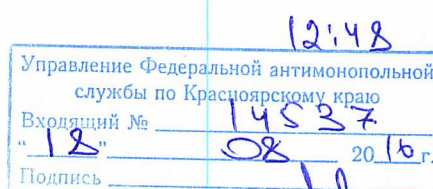 12:48
Управление Федеральной антимонопольной
службы по Красноярскому краю
Входящий № 14537
"18" 08 2016г.
Подпись